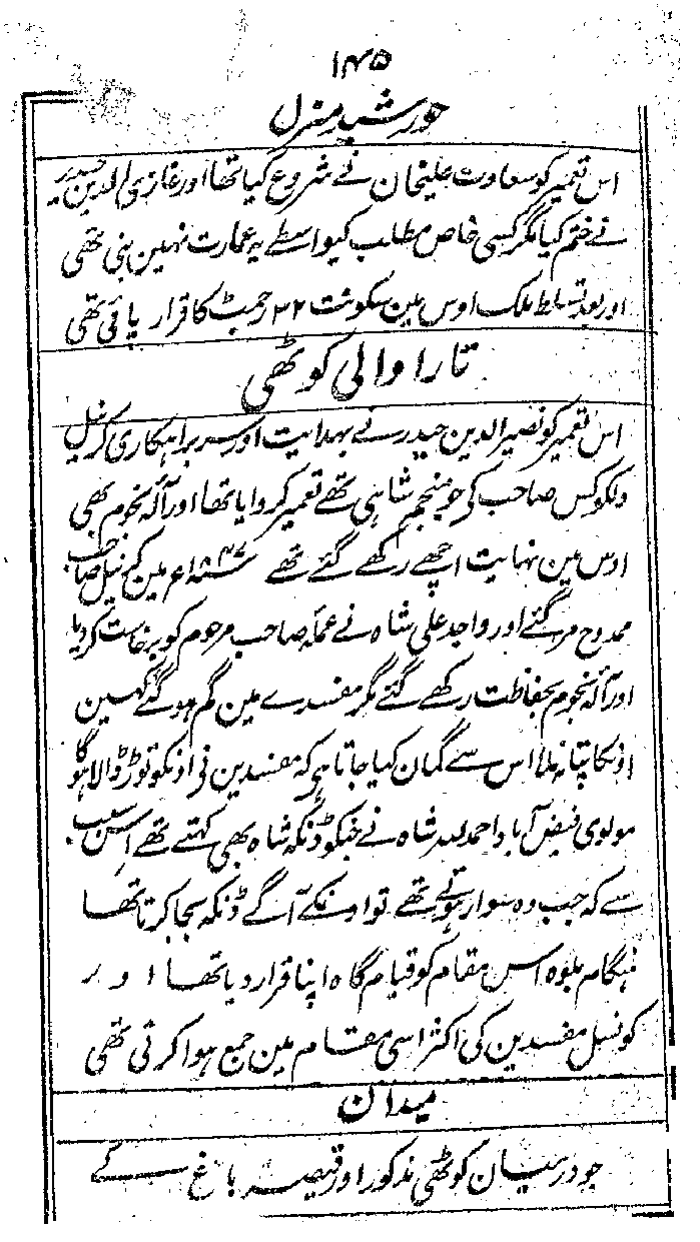 ۱۴۵
خورشید منزل
اس تعمیر کو سعادت علیخان نے شروع کیا تھا اور غازی الدین حیدر
نے ختم کیا مگر کسی خاص مطلب کیواسطے یہ عمارت نہین بنی تھی
اور بعد تسلط ملک اوس مین سکونت ۳۲ رجمٹ کا قرار پائی تھی
تارا والی کوٹھی
اس تعمیر کو نصیر الدین حیدر نے بہدایت اور سربراہکاری کرنیل
ولکوکس صاحب کی جو منجم شاہی تھے تعمیر کروایا تھا اور آلہ نجوم بھی
اوس مین نہایت اچھے رکھے گئے تھے ۱۸۴۷ء مین کرنیل صاحب
ممدوح مر گئے اور واجد علی شاہ نے عملہ صاحب مرحوم کو برخاست کر دیا
اور آلہ نجوم بحفاظت رکھے گئے مگر مفسدے مین گم ہو گئے کہین
اونکا پتا نہ ملا اس سے گمان کیا جاتا ہی کہ مفسدین نی اونکو توڑ ڈالا ہوگا
مولوی فیض آباد احمد اللہ شاہ نے جنکو ڈنکہ شاہ بھی کہتے تھے اس سبب
سے کہ جب وہ سوار ہوتے تھے تو اونکے آگے ڈنکہ بجا کرتا تھا
ہنگام بلوہ اس مقام کو قیام گاہ اپنا قرار دیا تھا اور
کونسل مفسدین کی اکثر اسی مقام مین جمع ہوا کرتی تھی
میدان
جو درمیان کوٹھی مذکور اور قیصر باغ کے